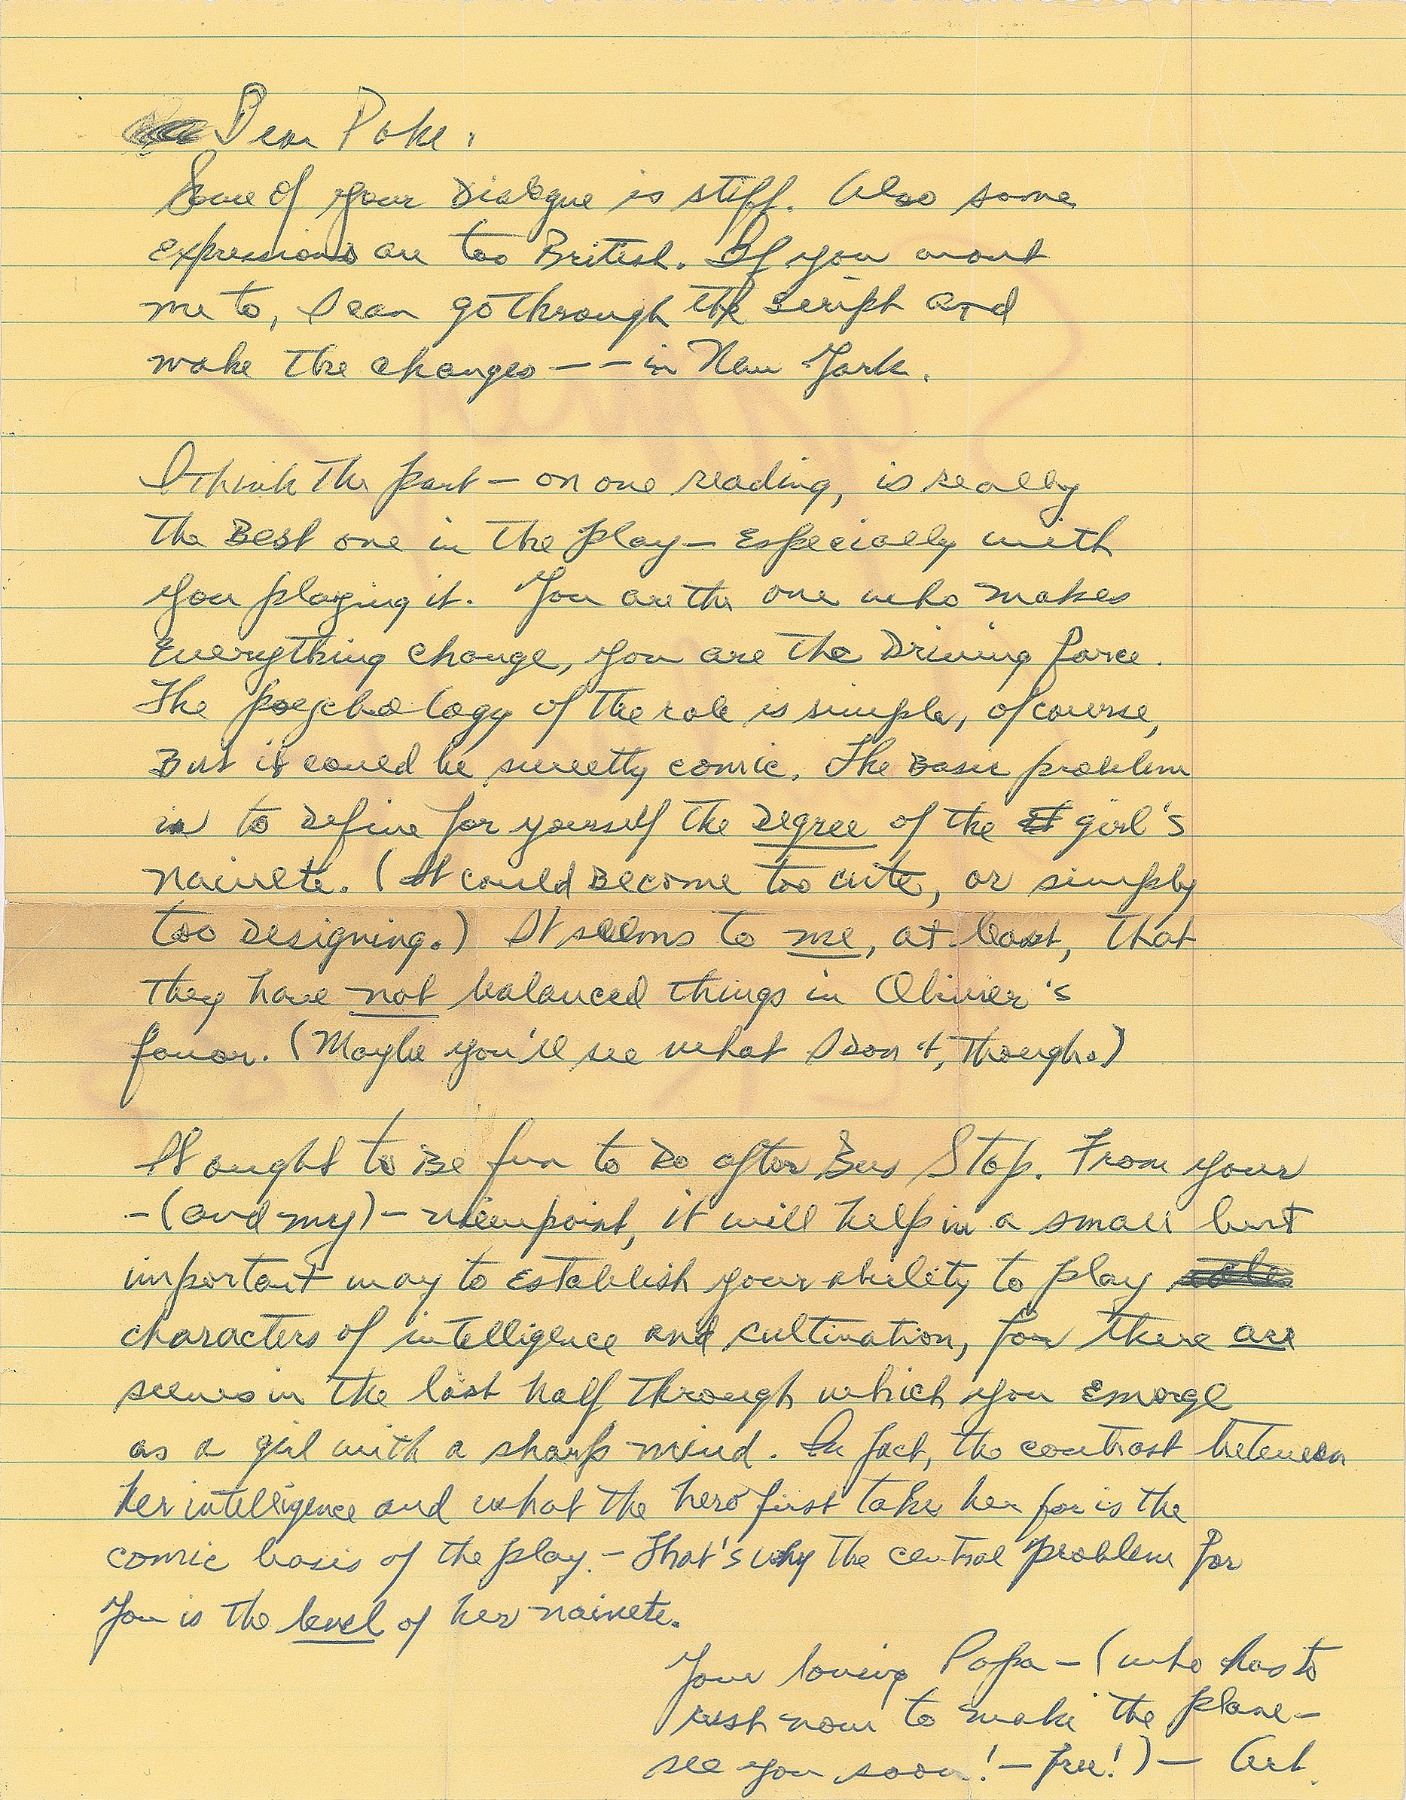 Dear Poke:
Some of your Dialogue is stiff. Also some
expressions are too British. If you want
me to, I can go through the script and
make the changes -- in New York.
I think the part - on one reading, is really
the Best one in the play - Especially with
you playing it. You are the one who makes
Everything change, you are the Driving force.
The psychology of the role is simple, of course,
But it could be sweetly comic. The Basic problem
is to Define for yourself the Degree of the girl's
naivete. (It could Become too cute, or simply
too Designing.) It seems to me, at least, that
they have not balanced things in Olivier's
favor. (Maybe you'll see what I Don't, though.)
It ought to Be fun to Do after Bus Stop. From your
-(and my)- viewpoint, it will help in a small but
important way to Establish your ability to play
characters of intelligence and cultivation, for there are
scenes in the last half through which you Emerge
as a girl with a sharp mind. In fact, the contrast between
her intelligence and what the hero first take her for is the
comic basis of the play. - That's why the central problem for
You is the level of her naivete.
Your loving Papa - (who has to
rush now to make the plane -
see you soon! - free!) - Art.